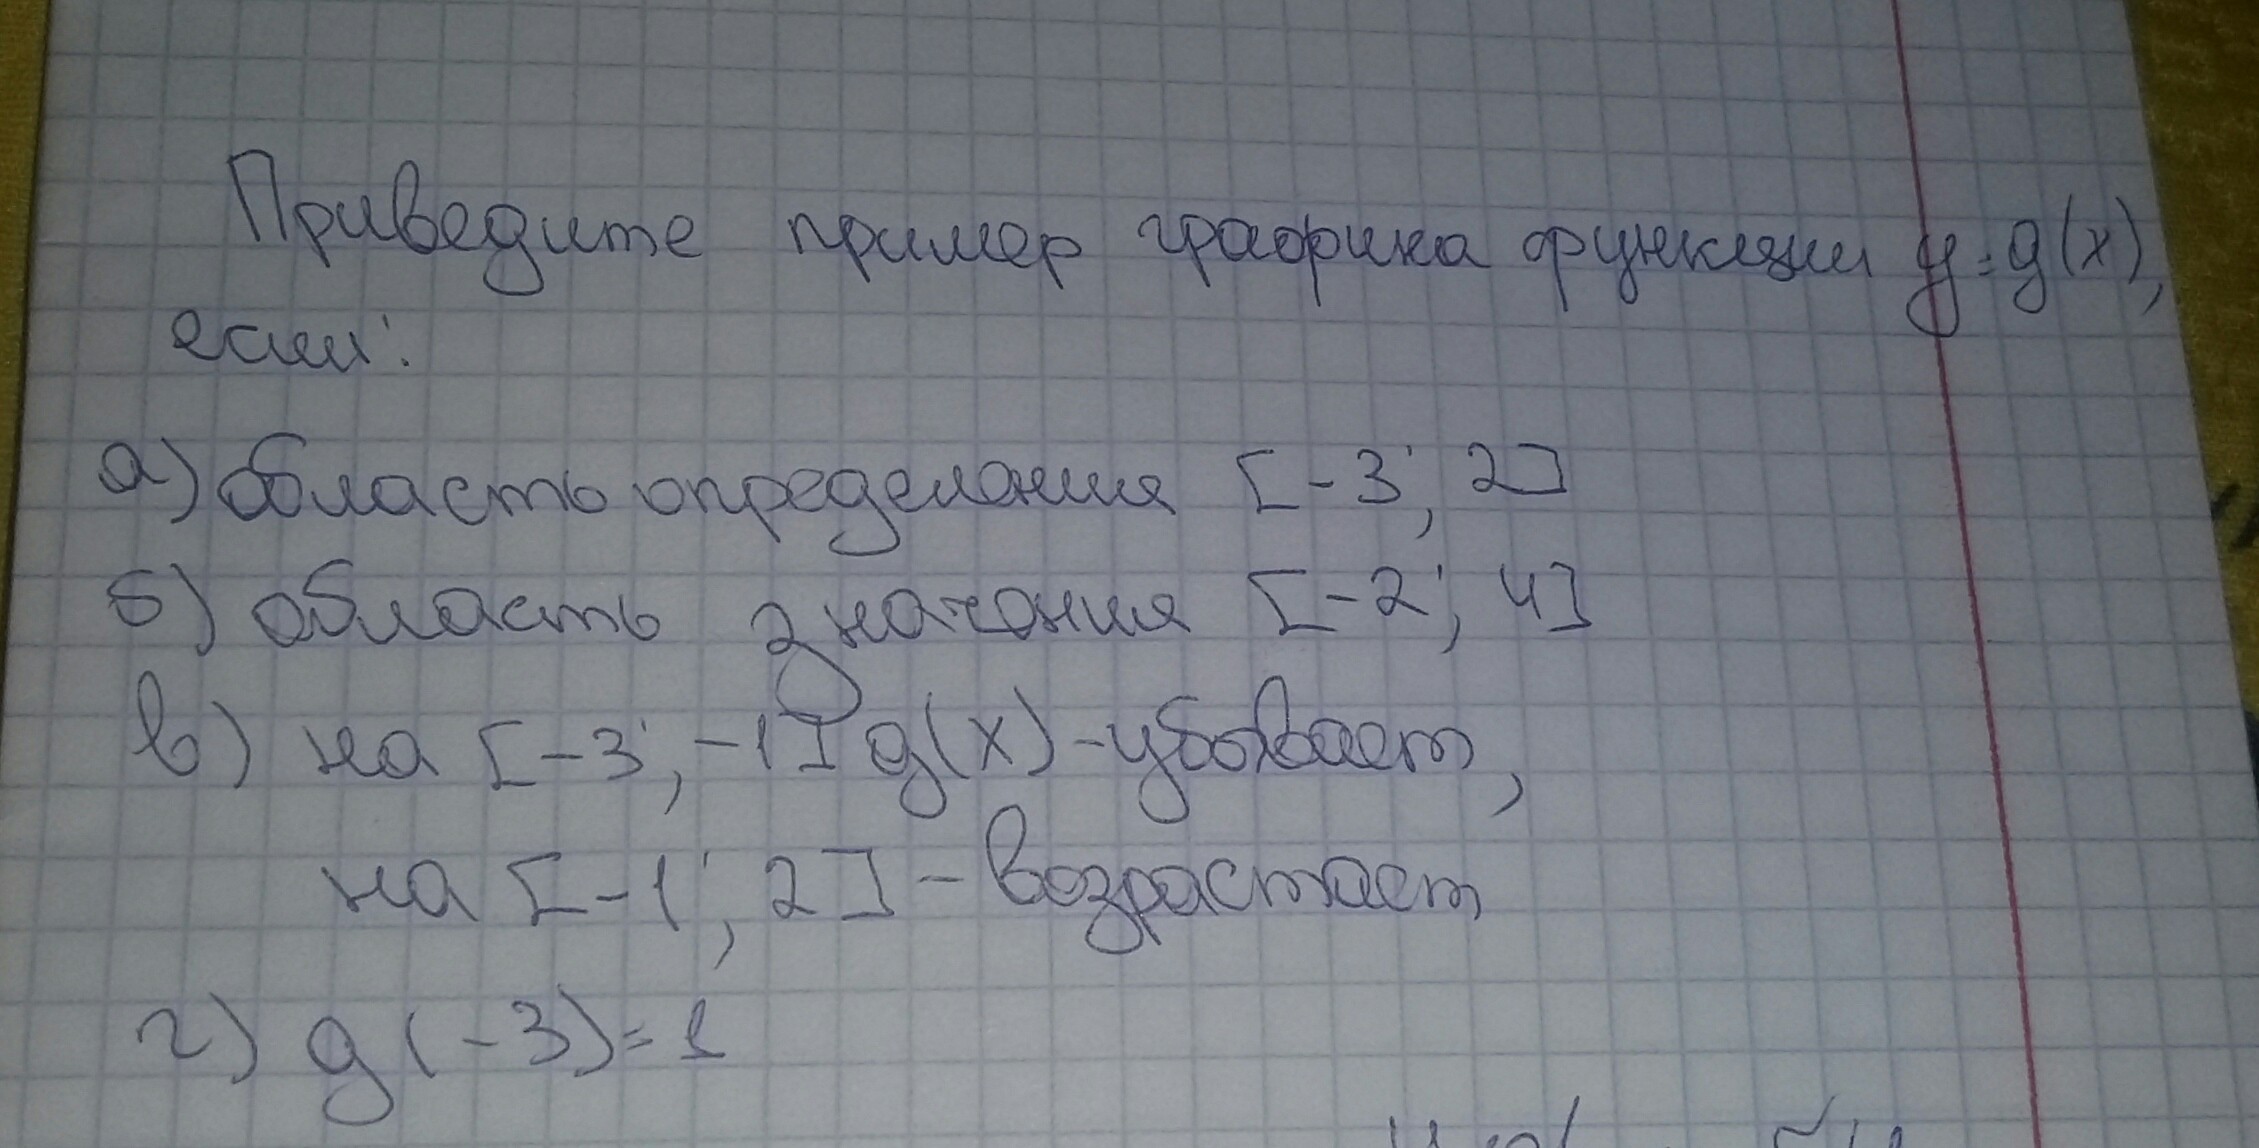 Приведите пример графика функции y=g(x),
если:
а) область определения [-3; 2]
б) область значения [-2; 4]
в) на [-3; -1] g(x) - убывает,
на [-1; 2] - возрастает
г) g(-3)=1